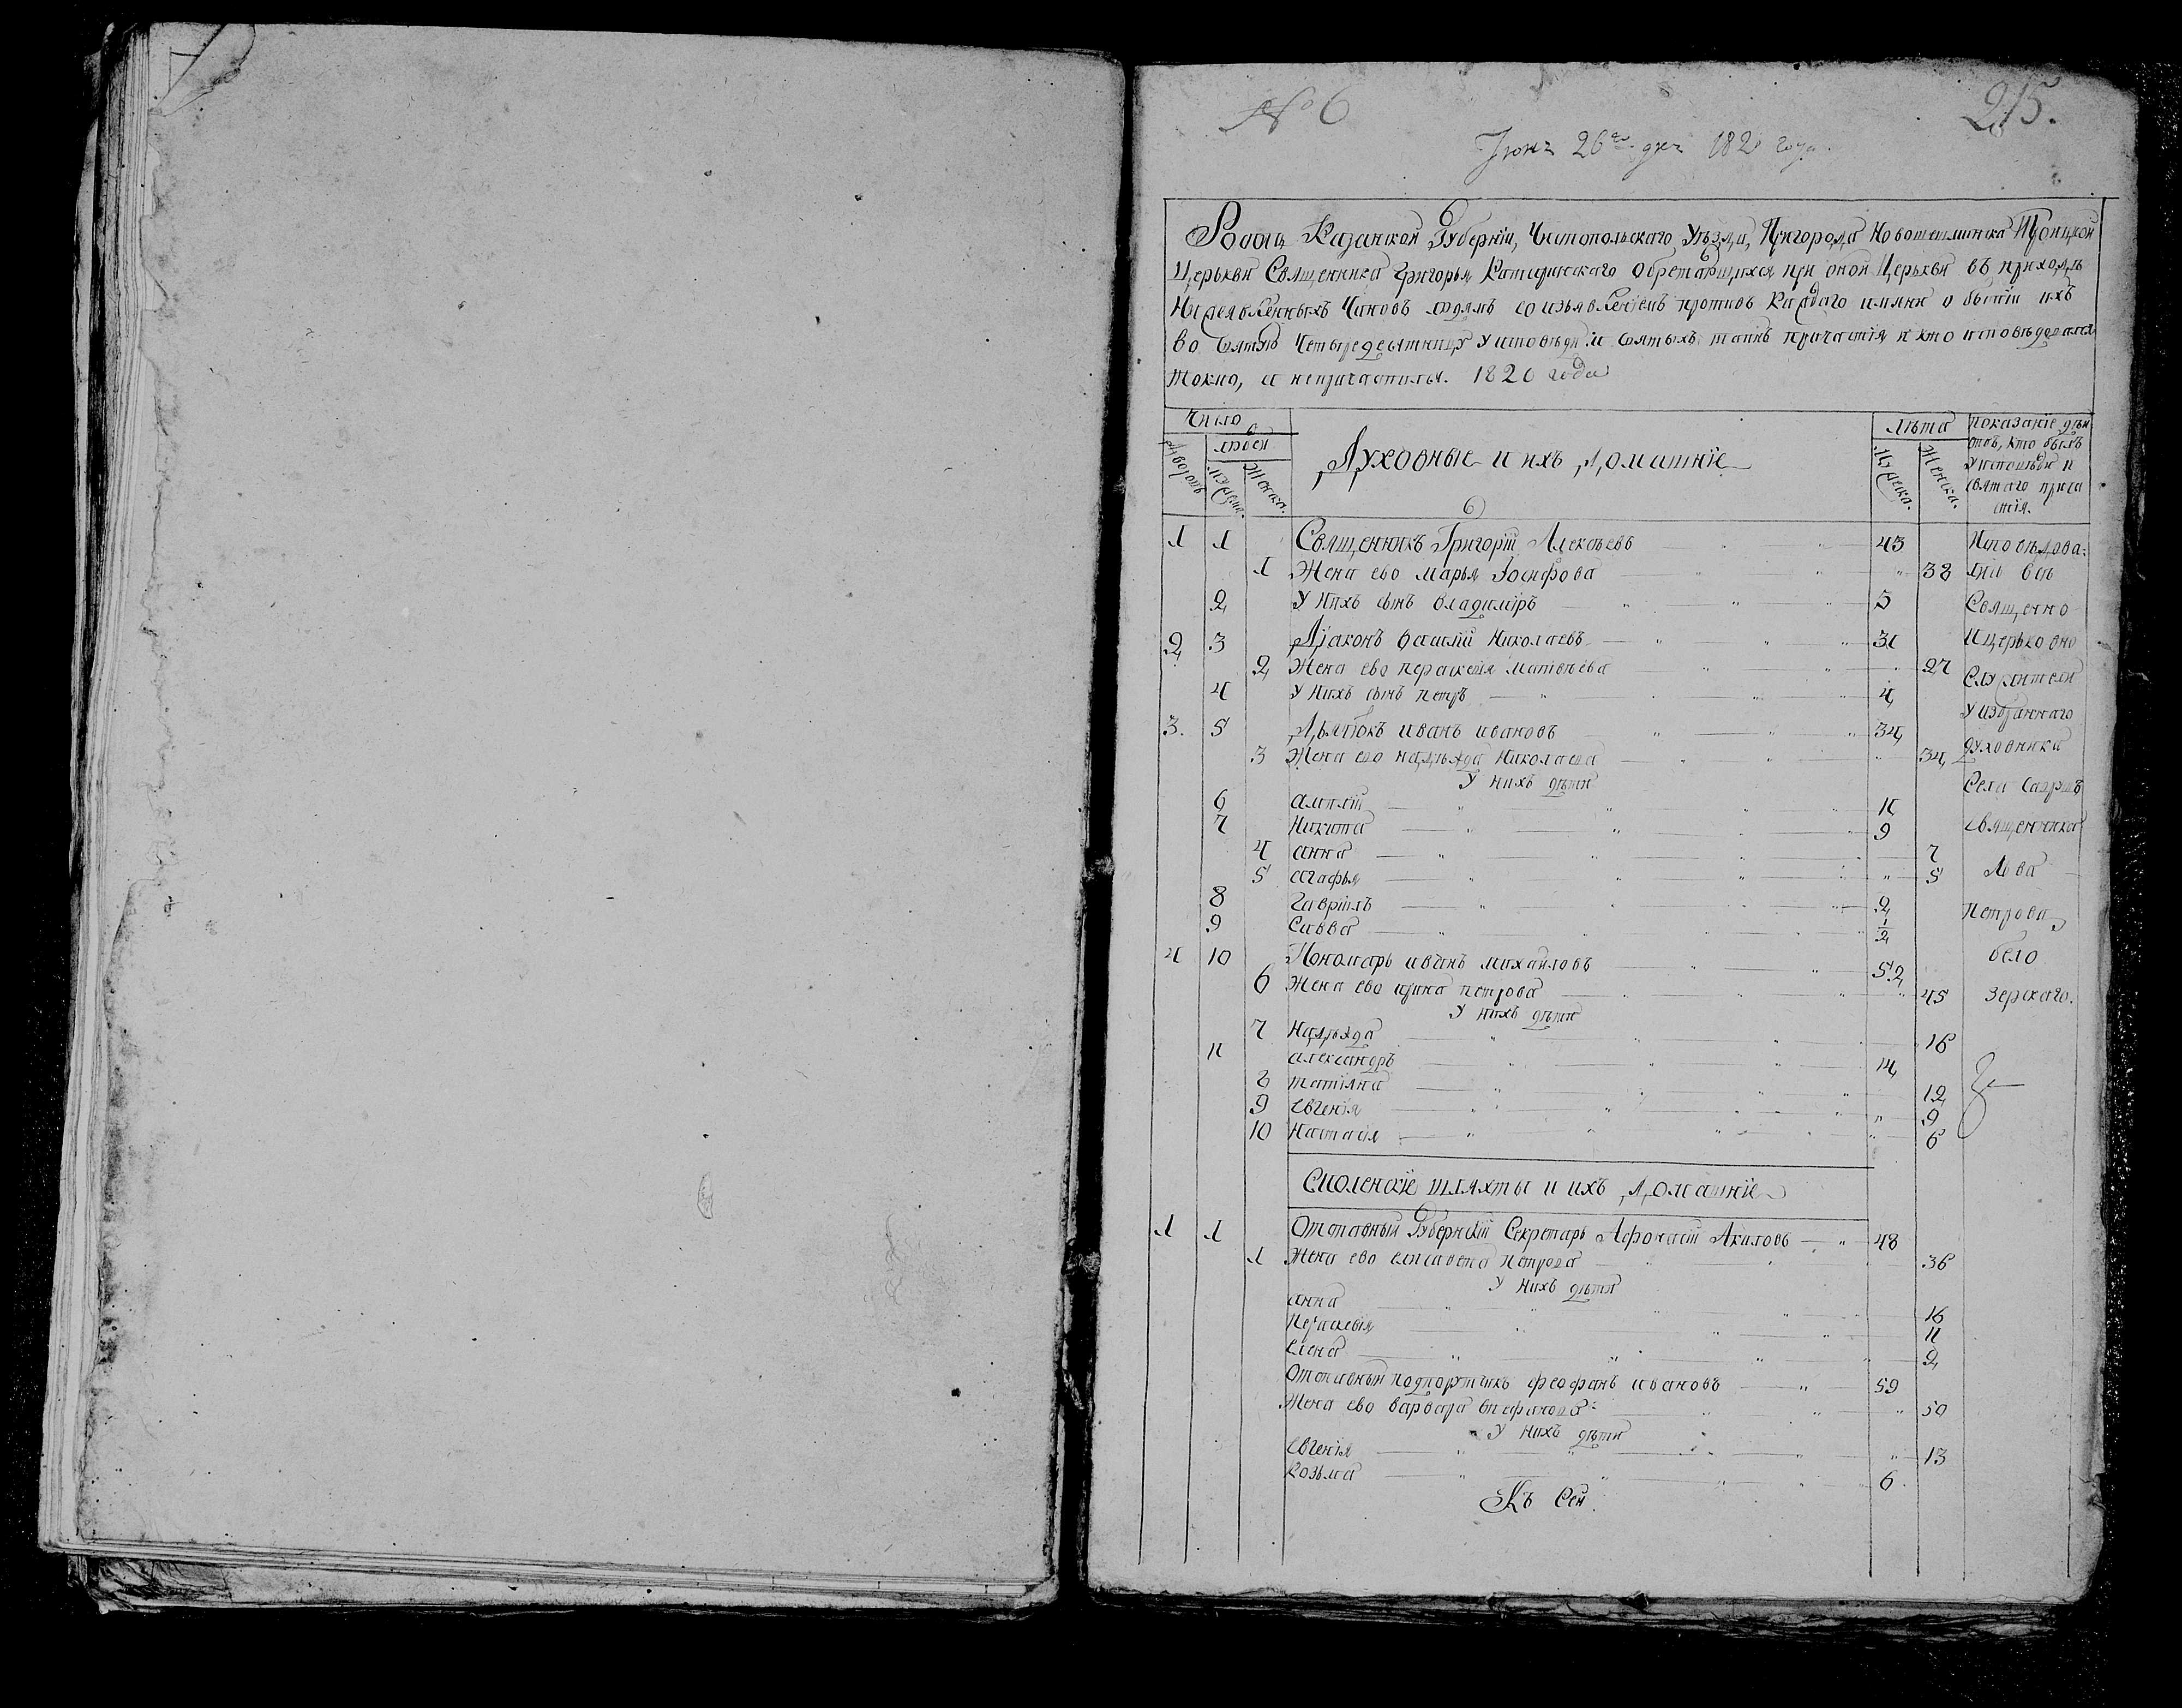 № 6
215.
Июня 26го дня 1820 года.
Роспись Казанской Губерніи, Чистопольскаго Уѣзда, Пригорода Новошешминска Троицкой
Церькви Священника Григорья обретающихся при оной Церькви въ приходѣ
Нижеявленныхъ Чиновъ людямъ со изъявленіемъ противъ каждаго имяни о бытіи ихъ
во Святую Четыредесятницу у исповѣди и святыхъ таинъ причастія и кто исповѣдовался
токмо, а непричастился. 1820 года
Число
Дворовъ
людей
Мужеска.
Женска.
Духовные и ихъ домашніе
лѣта
Мужеска.
Женска.
показаніе дѣй
ствъ, кто былъ
у исповѣди и
святаго прича
стія.
1 1 Священникъ Григорій Алексѣевъ 43 Исповѣдова-
1 Жена ево марья Іосифова 38 лись всѣ
2 У нихъ сынъ владимиръ 5 Священно
2 3 Діаконъ василій Николаевъ 31 и церьковно
2 Жена ево параскевія матвѣева 27 служители
4 У нихъ сынъ петръ 4 у избраннаго
3. 5 Дьячокъ иванъ ивановъ 34 духовника
3 Жена ево надѣжда Николаева 34
У нихъ дѣти
Села
6 11
7 Никита 9 священника
4 анна 7
5 агафья 5 Льва
8 гавріилъ 2 Петрова
9 Савва 1/2
4 10 Пономарь иванъ михайловъ 52 бело
6 Жена ево ирина петрова 45 зерскаго.
У нихъ дѣти
7 Надѣжда 16
11 александръ 14
8 татіяна 12
9 евгенія 9
10 Настасія 6
Смоленскіе шляхты и ихъ домашніе
1 1 Отставный Губернскій Секретарь Афонасій Акиловъ 48
1 Жена ево елисавета петрова 36
У нихъ дѣти
анна 16
Параскевія 11
елена 2
Отставный подпорутчикъ феофанъ ивановъ 59
Жена ево варвара стефанова 50
У нихъ дѣти
евгенія 13
козьма 6
Къ сей